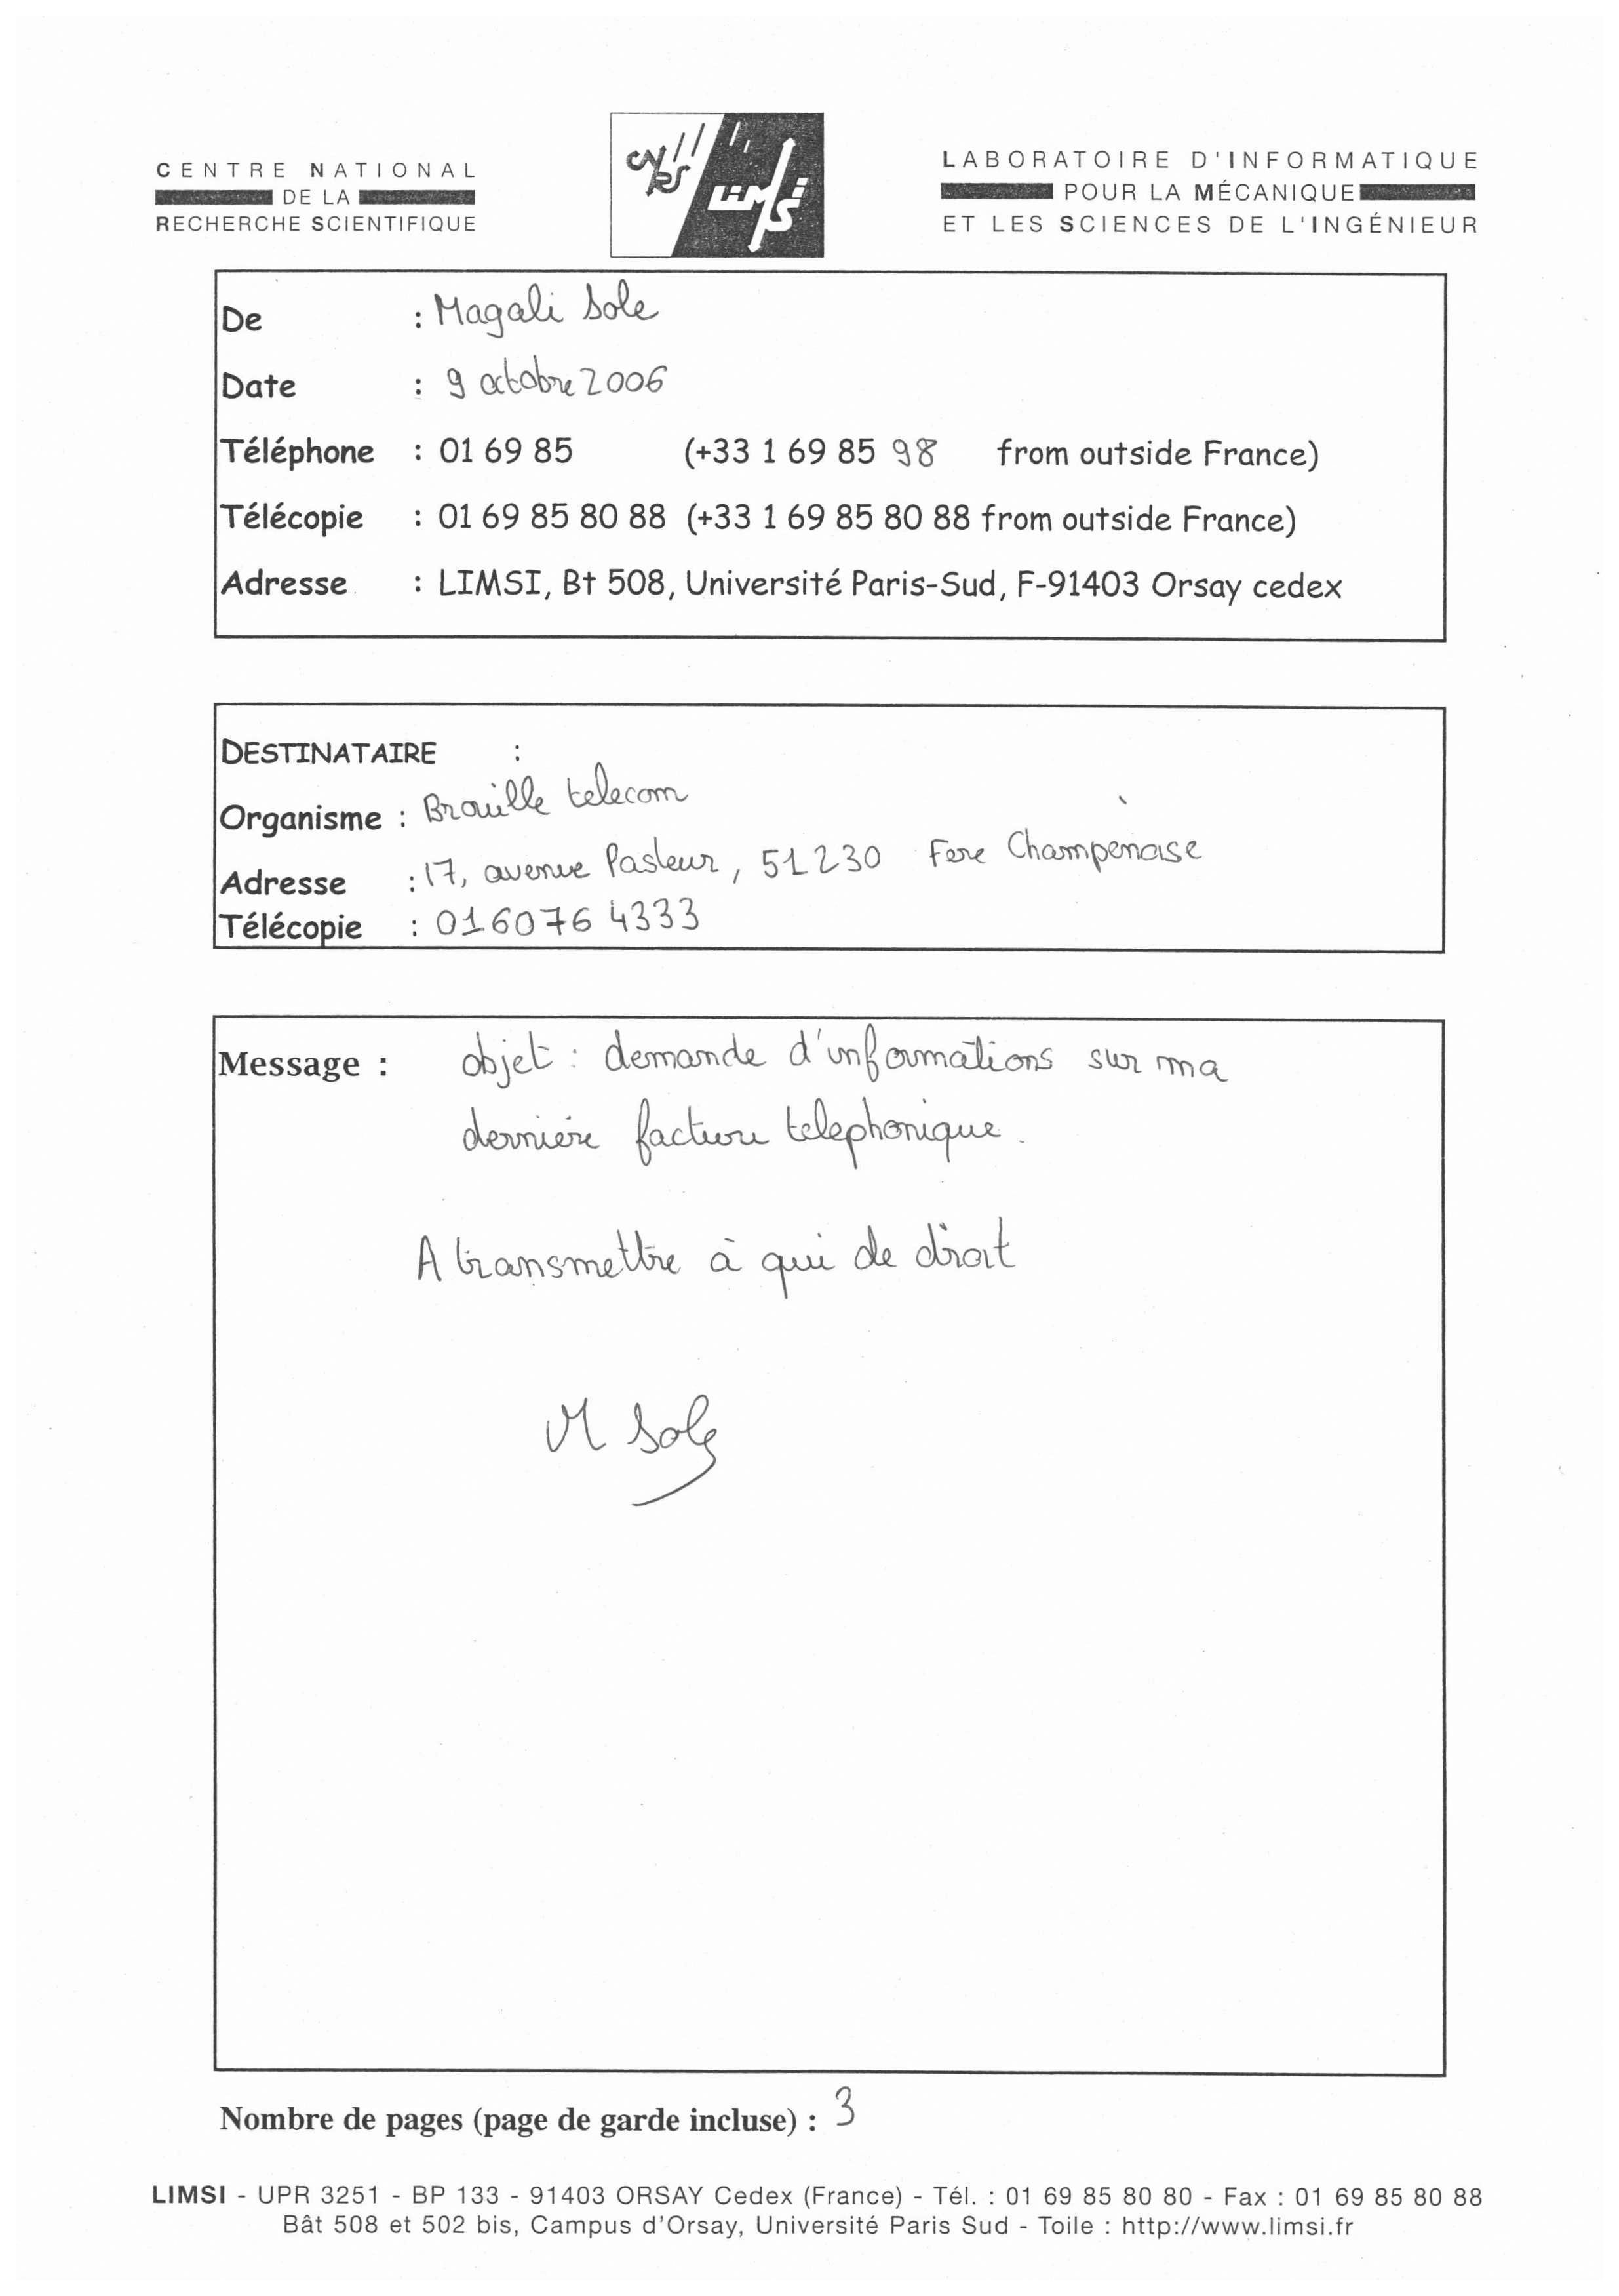 CENTRE NATIONAL
DE LA
RECHERCHE SCIENTIFIQUE
CNRS
LIMSI
LABORATOIRE D'INFORMATIQUE
POUR LA MÉCANIQUE
ET LES SCIENCES DE L'INGÉNIEUR
De : Magali Sole
Date : 9 octobre 2006
Téléphone : 01 69 85 (+33 1 69 85 98 from outside France)
Télécopie : 01 69 85 80 88 (+33 1 69 85 80 88 from outside France)
Adresse : LIMSI, Bt 508, Université Paris-Sud, F-91403 Orsay cedex
DESTINATAIRE :
Organisme : Brouille telecom
Adresse : 17, avenue Pasteur, 51230 Fere Champenoise
Télécopie : 0160764333
Message : objet : demande d'informations sur ma
dernière facture telephonique.
A transmettre à qui de droit
M Sole
Nombre de pages (page de garde incluse) : 3
LIMSI - UPR 3251 - BP 133 - 91403 ORSAY Cedex (France) - Tél. : 01 69 85 80 80 - Fax : 01 69 85 80 88
Bât 508 et 502 bis, Campus d'Orsay, Université Paris Sud - Toile : http://www.limsi.fr